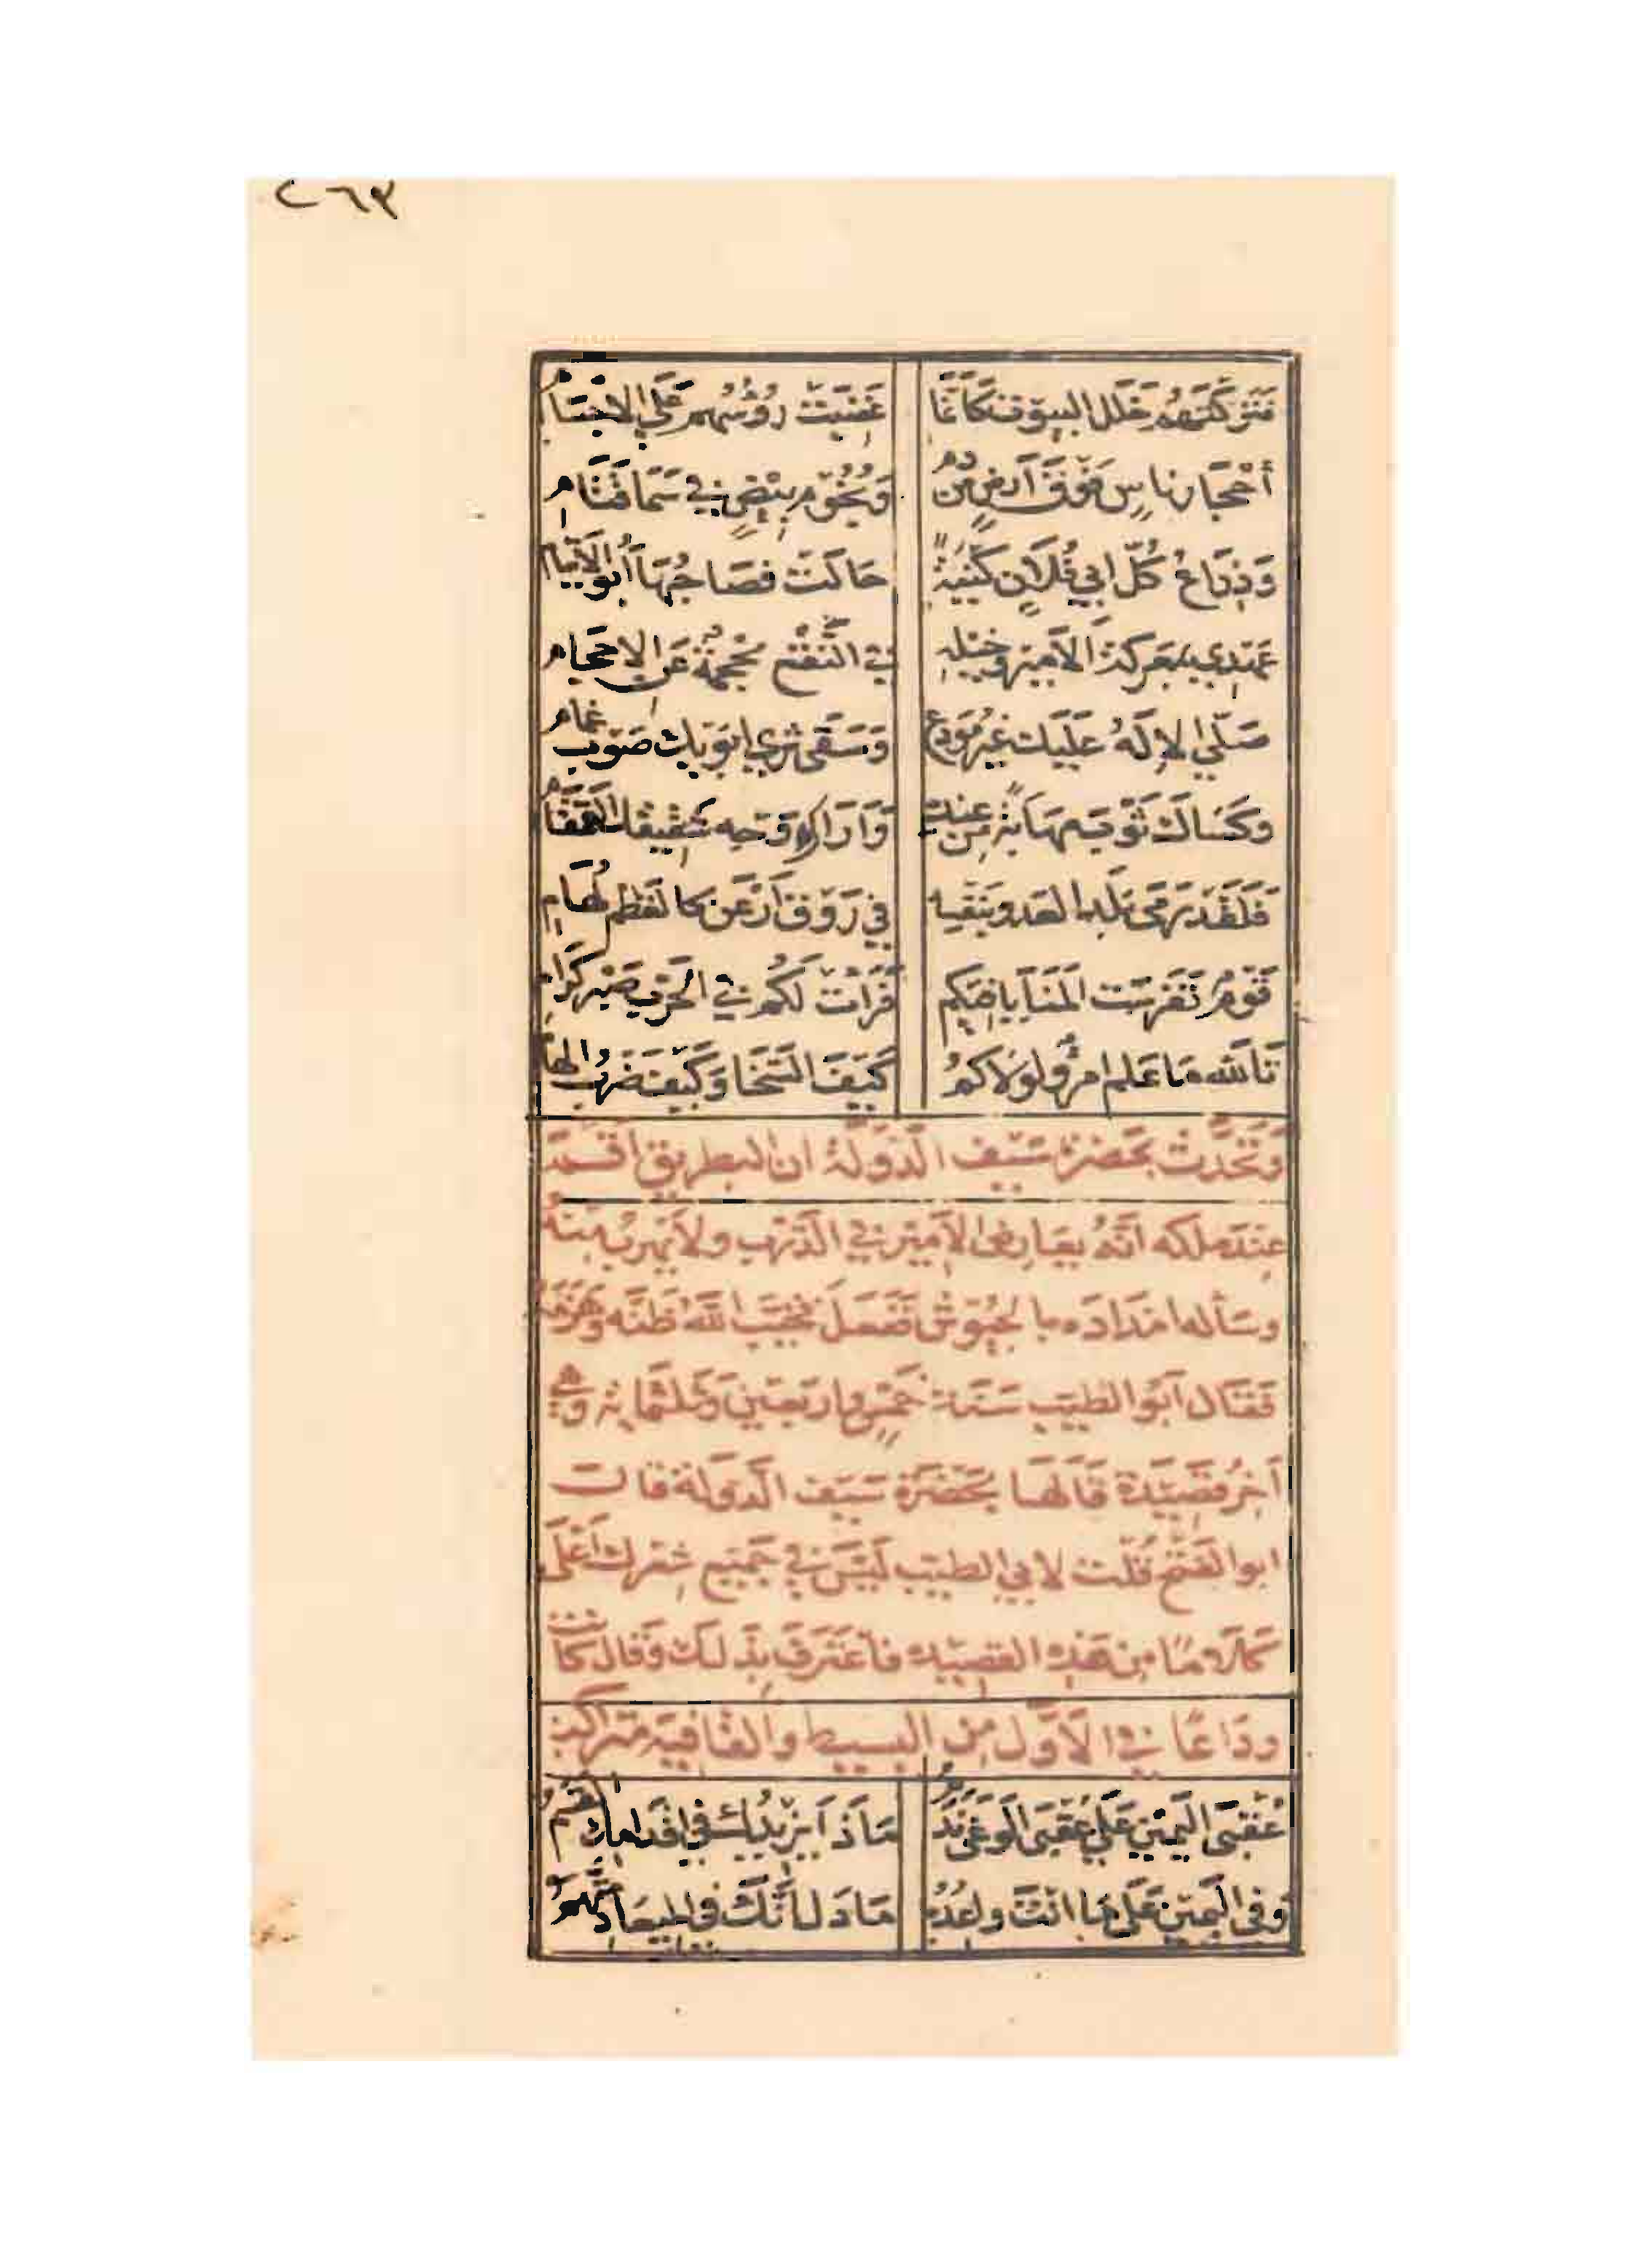 ٢٦٣
فَتَركتَهُم خَلَل البيوت كَأَنَّمَا غَضِبَت رُؤُسُهم عَلَى الاجسَام
أحْجَار ناسٍ فَوقَ أَرضٍ مِن دم وَنُجُوم بيضٍ فِي سَمَا قَتَام
وَذِرَاعُ كُلّ ابي فُلَانٍ كُنْيَةً حَالَت فصَاحِبُهَا أَبُو الأَيتَام
عَهدِي بمَعركة الأَمير وَخَيله في النَّقْع مُحْجمَةً عَن الاحجَام
صَلَّى الإلَهُ عَلَيكَ غَيرَ مُوَدَّع وَسَقَى ثرى ابَوَيك صَوبَ غمام
وكَسَاكَ ثَوبَ مهَابَةٍ مِن عندِهِ وَأَرَاك وَجه شَقِيقك القَمقَام
فَلَقَد رَمَى بَلَد العَدو بنَفسِه فِي رَوق أَرْعَن كالغَطَم لُهَام
قَومٌ تَفَرَّسَت المَنَايَا فِيكم فَرَأَت لَكُم في الحَرب صَبر كِرَام
تَاللّه مَا عَلم امرُؤ لولَاكمُ كَيفَ السَّخَا وَكَيفَ ضَربُ الهَام
وَتَحَدَّث بحَضرَة سَيف الدَّولَة ان البطريق اقسَمَ
عِندَ ملكه انَّهُ يعَارض الأَمير في الدَّرب
وسَأله امدَادَه بالجيُوش فَفعَلَ فخَيَّبَ اللَّهُ ظَنَّه وَهَزَمَهُ
فَقَال أَبُو الطيّب سَنَة خَمسٍ وارَبعين وَثلثمَايَة وَهي
آخِرُ قصَيدَة قَالَهَا بحَضرَة سَيف الدَولة قال
ابو الفَتح قُلت لابي الطيّب لَيسَ في جَميع شِعرك أَعلَى
كَلَامًا مِن هَذِه القصيَده فاعتَرَف بِذَلك وَقال كانت
ودَاعًا فِي الأَوَّل مِن البسيط والقَافيَة متَراكب
عُقبَى اليَمين عَلَى عُقبَى الوَغَى نَدَمُ مَاذَا يَزيدُك فِي اقدَامِك القَسَمُ
وَفي اليَمين عَلَى مَا انتَ وَاعِدُهُ مَا دَل أنَّكَ فِي الميعَاد مُتَّهَمُ